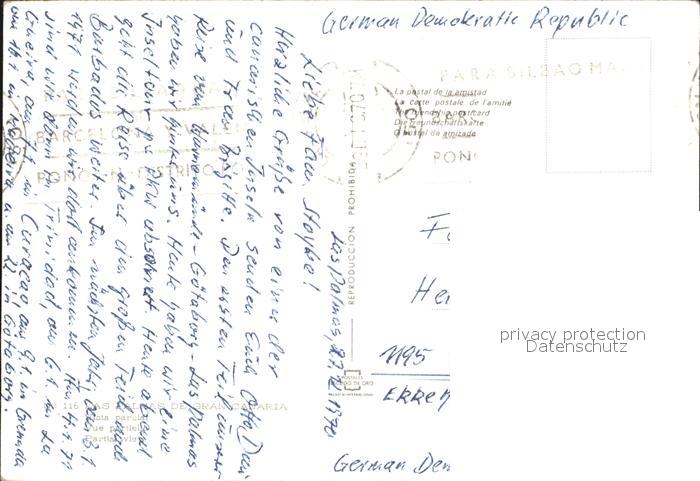 German Demokratic Republic
Las Palmas, 27.12.1970
Liebe Fam. Stopke!
Herzliche Grüße von einer der
canarischen Inseln senden Euch Otto Dani
und Frau Brigitte. Den ersten Teil unserer
Reise von Warnemünde-Göteborg-Las Palmas
haben wir hinter uns. Heute haben wir eine
Inseltour per PKW absolviert. Heute abend
geht die Reise über den großen Teich nach
Barbados weiter. Im nächsten Jahr am 3.1.
1971 werden wir dort ankommen. Am 4.1.71
sind wir dann in Trinidad, am 6.1. in La
Guaira, am 7.1. in Curacao, am 9.1. in Grenada
am 19.1. in Madeira u. am 22. in Göteborg.
PARA BILBAO MA
La postal de la amistad
La carte postale de l'amitié
The friendship postcard
Die Freundschaftskarte
O postal da amizade
REPRODUCCION PROHIBIDA
BARCELONA SEVILLA
DISTRITO
POSTALES
ESCUDO DE ORO
1195
German Dem
116 LAS PALMAS DE GRAN CANARIA
Vista parcial
Vue partielle
Partial view
privacy protection
Datenschutz